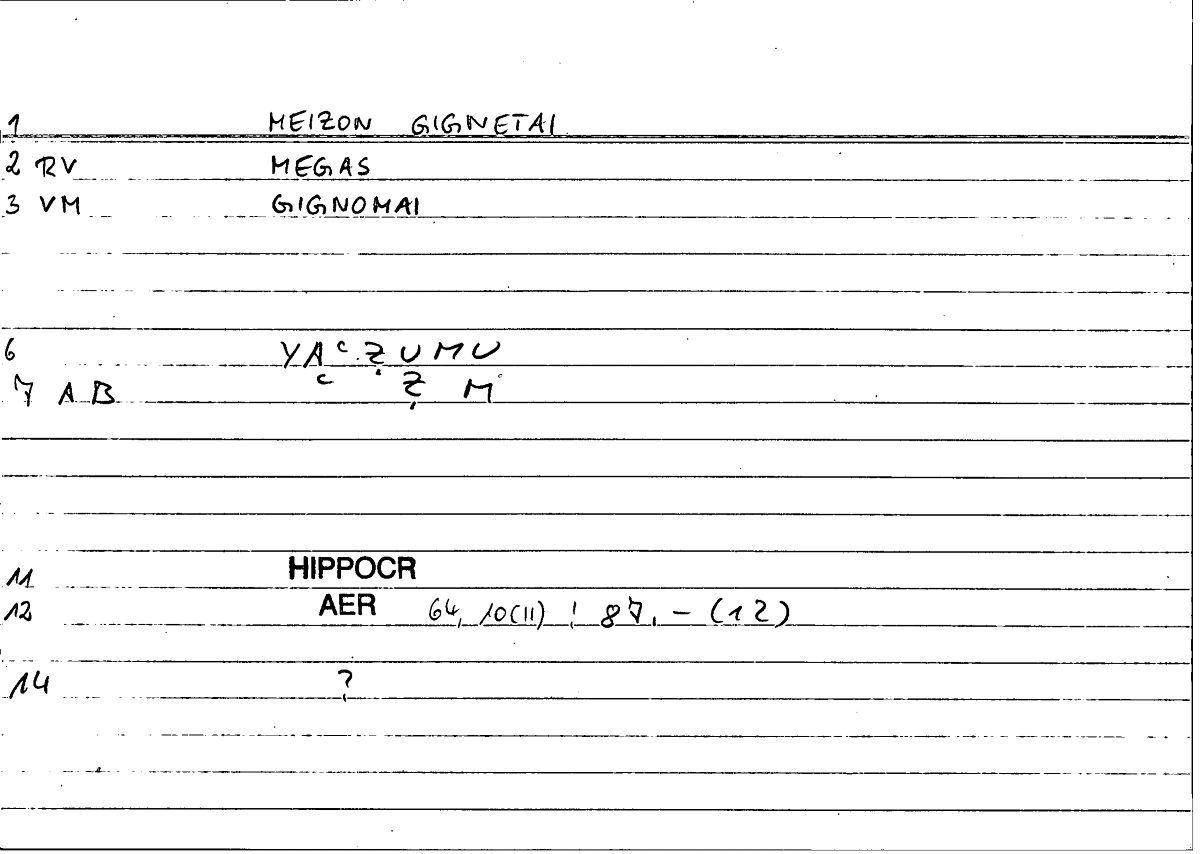 1 MEIZON GIGNETAI
2 RV MEGAS
3 VM GIGNOMAI
6 YAᶜẒUMU
7 AB ᶜ Ẓ M
11 HIPPOCR
12 AER 64, 10(11) ; 87, - (12)
14 ?